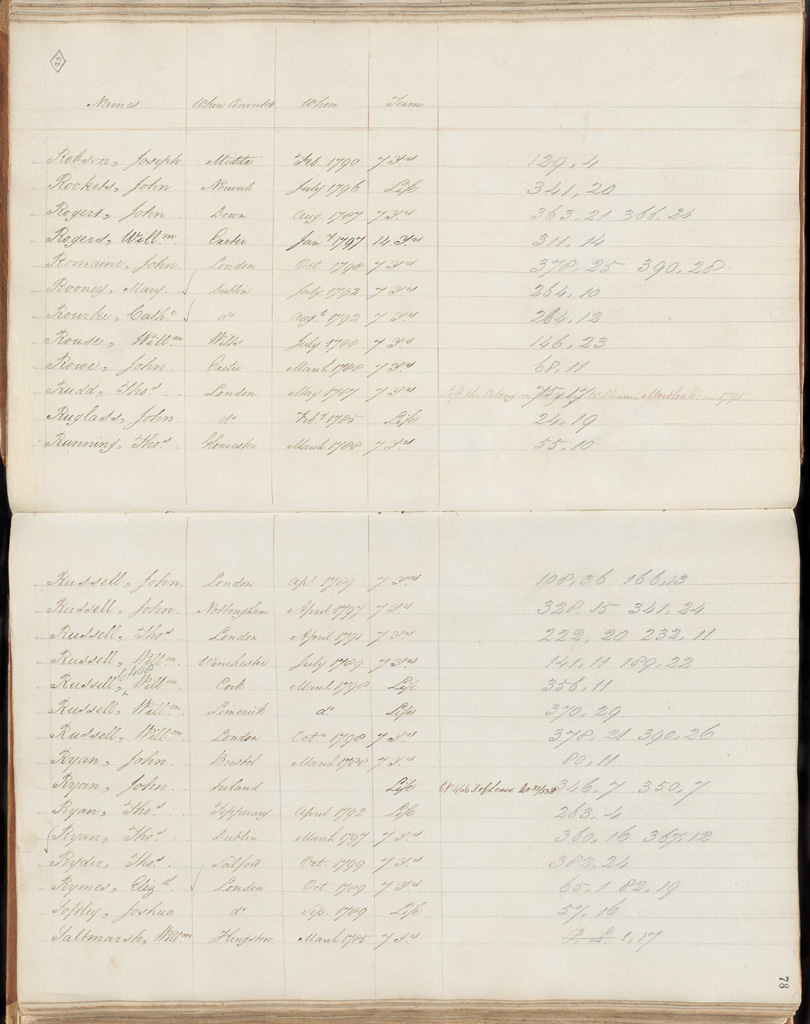 Names Where Convicted When Term
Robson, Joseph Middx Feb. 1790 7 Yrs 129, 4
Rockets, John Norwich July 1796 Life 341, 20
Rogers, John Down Aug. 1787 7 Yrs 363, 21 366, 24
Rogers, Willm Exeter Jany 1797 14 Yrs 311, 14
Romaine, John London Oct 1798 7 Yrs 378, 25 390, 28
Rooney, Mary Dublin July 1792 7 Yrs 264, 10
Rourke, Cathe do Augt 1792 7 Yrs 264, 12
Rouse, Willm Wilts July 1788 7 Yrs 146, 23
Rowe, John Exeter March 1788 7 Yrs 68, 11
Rudd, Thos London May 1787 7 Yrs Left the Colony in 75, 17 William, in 1795
Ruglass, John do Feby 1785 Life 24, 19
Running, Thos Gloucester March 1788 7 Yrs 55, 10
Russell, John London Apl 1789 7 Yrs 108, 36 166, 13
Russell, John Nottingham April 1797 7 Yrs 328, 15 341, 24
Russell, Thos London April 1791 7 Yrs 222, 20 232, 11
Russell, Willm Winchester July 1789 7 Yrs 141, 11 189, 22
Russell, Willm Cork March 1798 Life 356, 11
Russell, Willm Limerick do Life 370, 29
Russell, Willm London Octr 1798 7 Yrs 378, 21 390, 26
Ryan, John Bristol March 1788 7 Yrs 80, 11
Ryan, John Ireland Life 346, 7 350, 7
Ryan, Thos Tipperary April 1792 Life 263, 4
Ryan, Thos Dublin March 1797 7 Yrs 360, 16 367, 12
Ryder, Thos Salford Oct 1799 7 Yrs 382, 24
Rymes, Elizth London Oct. 1789 7 Yrs 65, 1 82, 19
Softley, Joshua do Sep. 1789 Life 57, 16
Saltmarsh, Willm Kingston March 1785 7 Yrs P. L. 1, 17
78